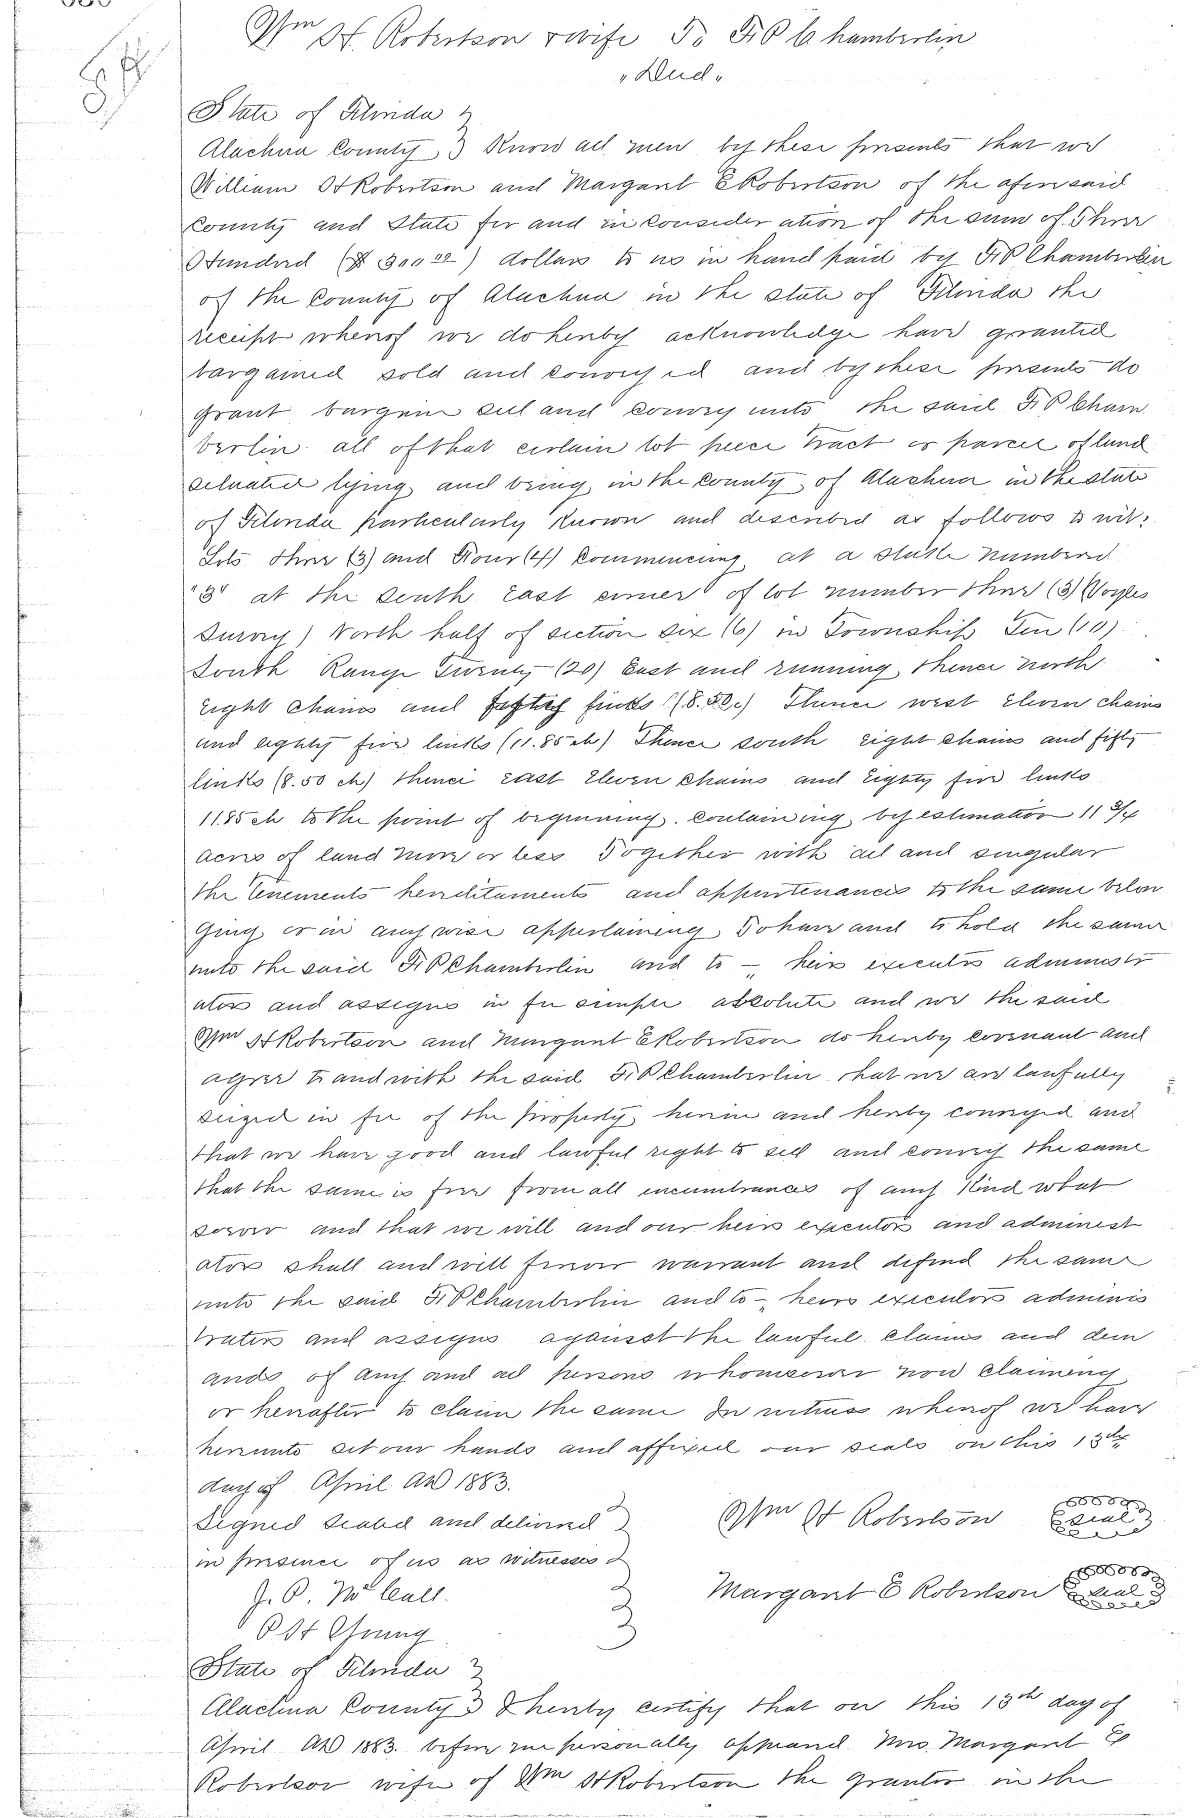 Wm H. Robertson & wife To F. P. Chamberlin
"Deed"
State of Florida }
Alachua County } Know all men by these presents that we
William H Robertson and Margaret E Robertson of the aforesaid
County and State for and in consideration of the sum of Three
Hundred ($ 300 00) dollars to us in hand paid by F. P. Chamberlin
of the County of Alachua in the state of Florida the
receipt whereof we do hereby acknowledge have granted
bargained sold and conveyed and by these presents do
grant bargain sell and convey unto the said F. P. Cham
berlin all of that certain lot piece tract or parcel of land
situated lying and being in the county of Alachua in the state
of Florida particularly known and described as follows to wit:
Lots three (3) and Four (4) commencing at a stake numbered
"3" at the South East corner of lot number three (3) (Voyles
Survey) North half of section six (6) in Township Ten (10)
South Range Twenty (20) East and running thence north
Eight chains and fifty links (8.50 c) Thence west Eleven chains
and eighty five links (11.85 ch) Thence south eight chains and fifty
links (8.50 ch) thence east Eleven chains and Eighty five links
11.85 ch to the point of beginning. containing by estimation 11 3/4
acres of land more or less Together with all and singular
the tenements hereditaments and appurtenances to the same belon
ging or in any wise appertaining To have and to hold the same
unto the said F. P. Chamberlin and to — heirs executors administr
ators and assigns in fee simple absolute and we the said
Wm H Robertson and Margaret E Robertson do hereby covenant and
agree to and with the said F. P. Chamberlin that we are lawfully
seized in fee of the property herein and hereby conveyed and
that we have good and lawful right to sell and convey the same
that the same is free from all incumbrances of any kind what
soever and that we will and our heirs executors and administ
ators shall and will forever warrant and defend the same
unto the said F. P. Chamberlin and to — heirs executors adminis
trators and assigns against the lawful claims and dem
ands of any and all persons whomsoever now claiming
or hereafter to claim the same In witness whereof we have
hereunto set our hands and affixed our seals on this 13th
day of April AD 1883.
Signed sealed and delivered } Wm H Robertson seal
in presence of us as witnesses }
J. P. McCall. } Margaret E Robertson seal
P H Young }
State of Florida }
Alachua County } I hereby certify that on this 13th day of
April AD 1883. before me personally appeared Mrs. Margaret E
Robertson wife of Wm H Robertson the grantor in the